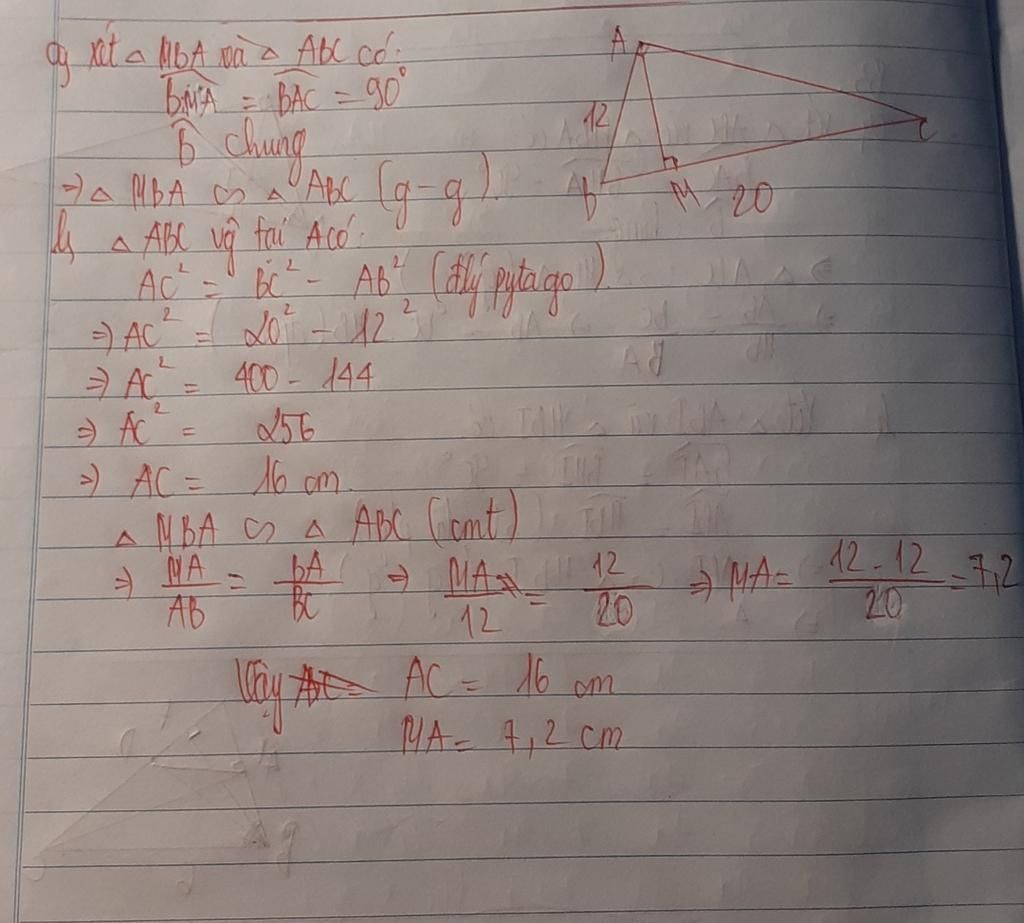 a, xét △ MBA và △ ABC có:
BMA = BAC = 90°
B chung
=> △ MBA ∽ △ ABC (g-g).
b, △ ABC vg tại A có:
AC² = BC² - AB² (đlý pytago)
=> AC² = 20² - 12²
=> AC² = 400 - 144
=> AC² = 256
=> AC = 16 cm
△ MBA ∽ △ ABC (cmt)
=> MA/AB = BA/BC => MA/12 = 12/20 => MA = 12.12/20 = 7,2
Vậy AC = 16 cm
MA = 7,2 cm
A
12
B
M
20
C